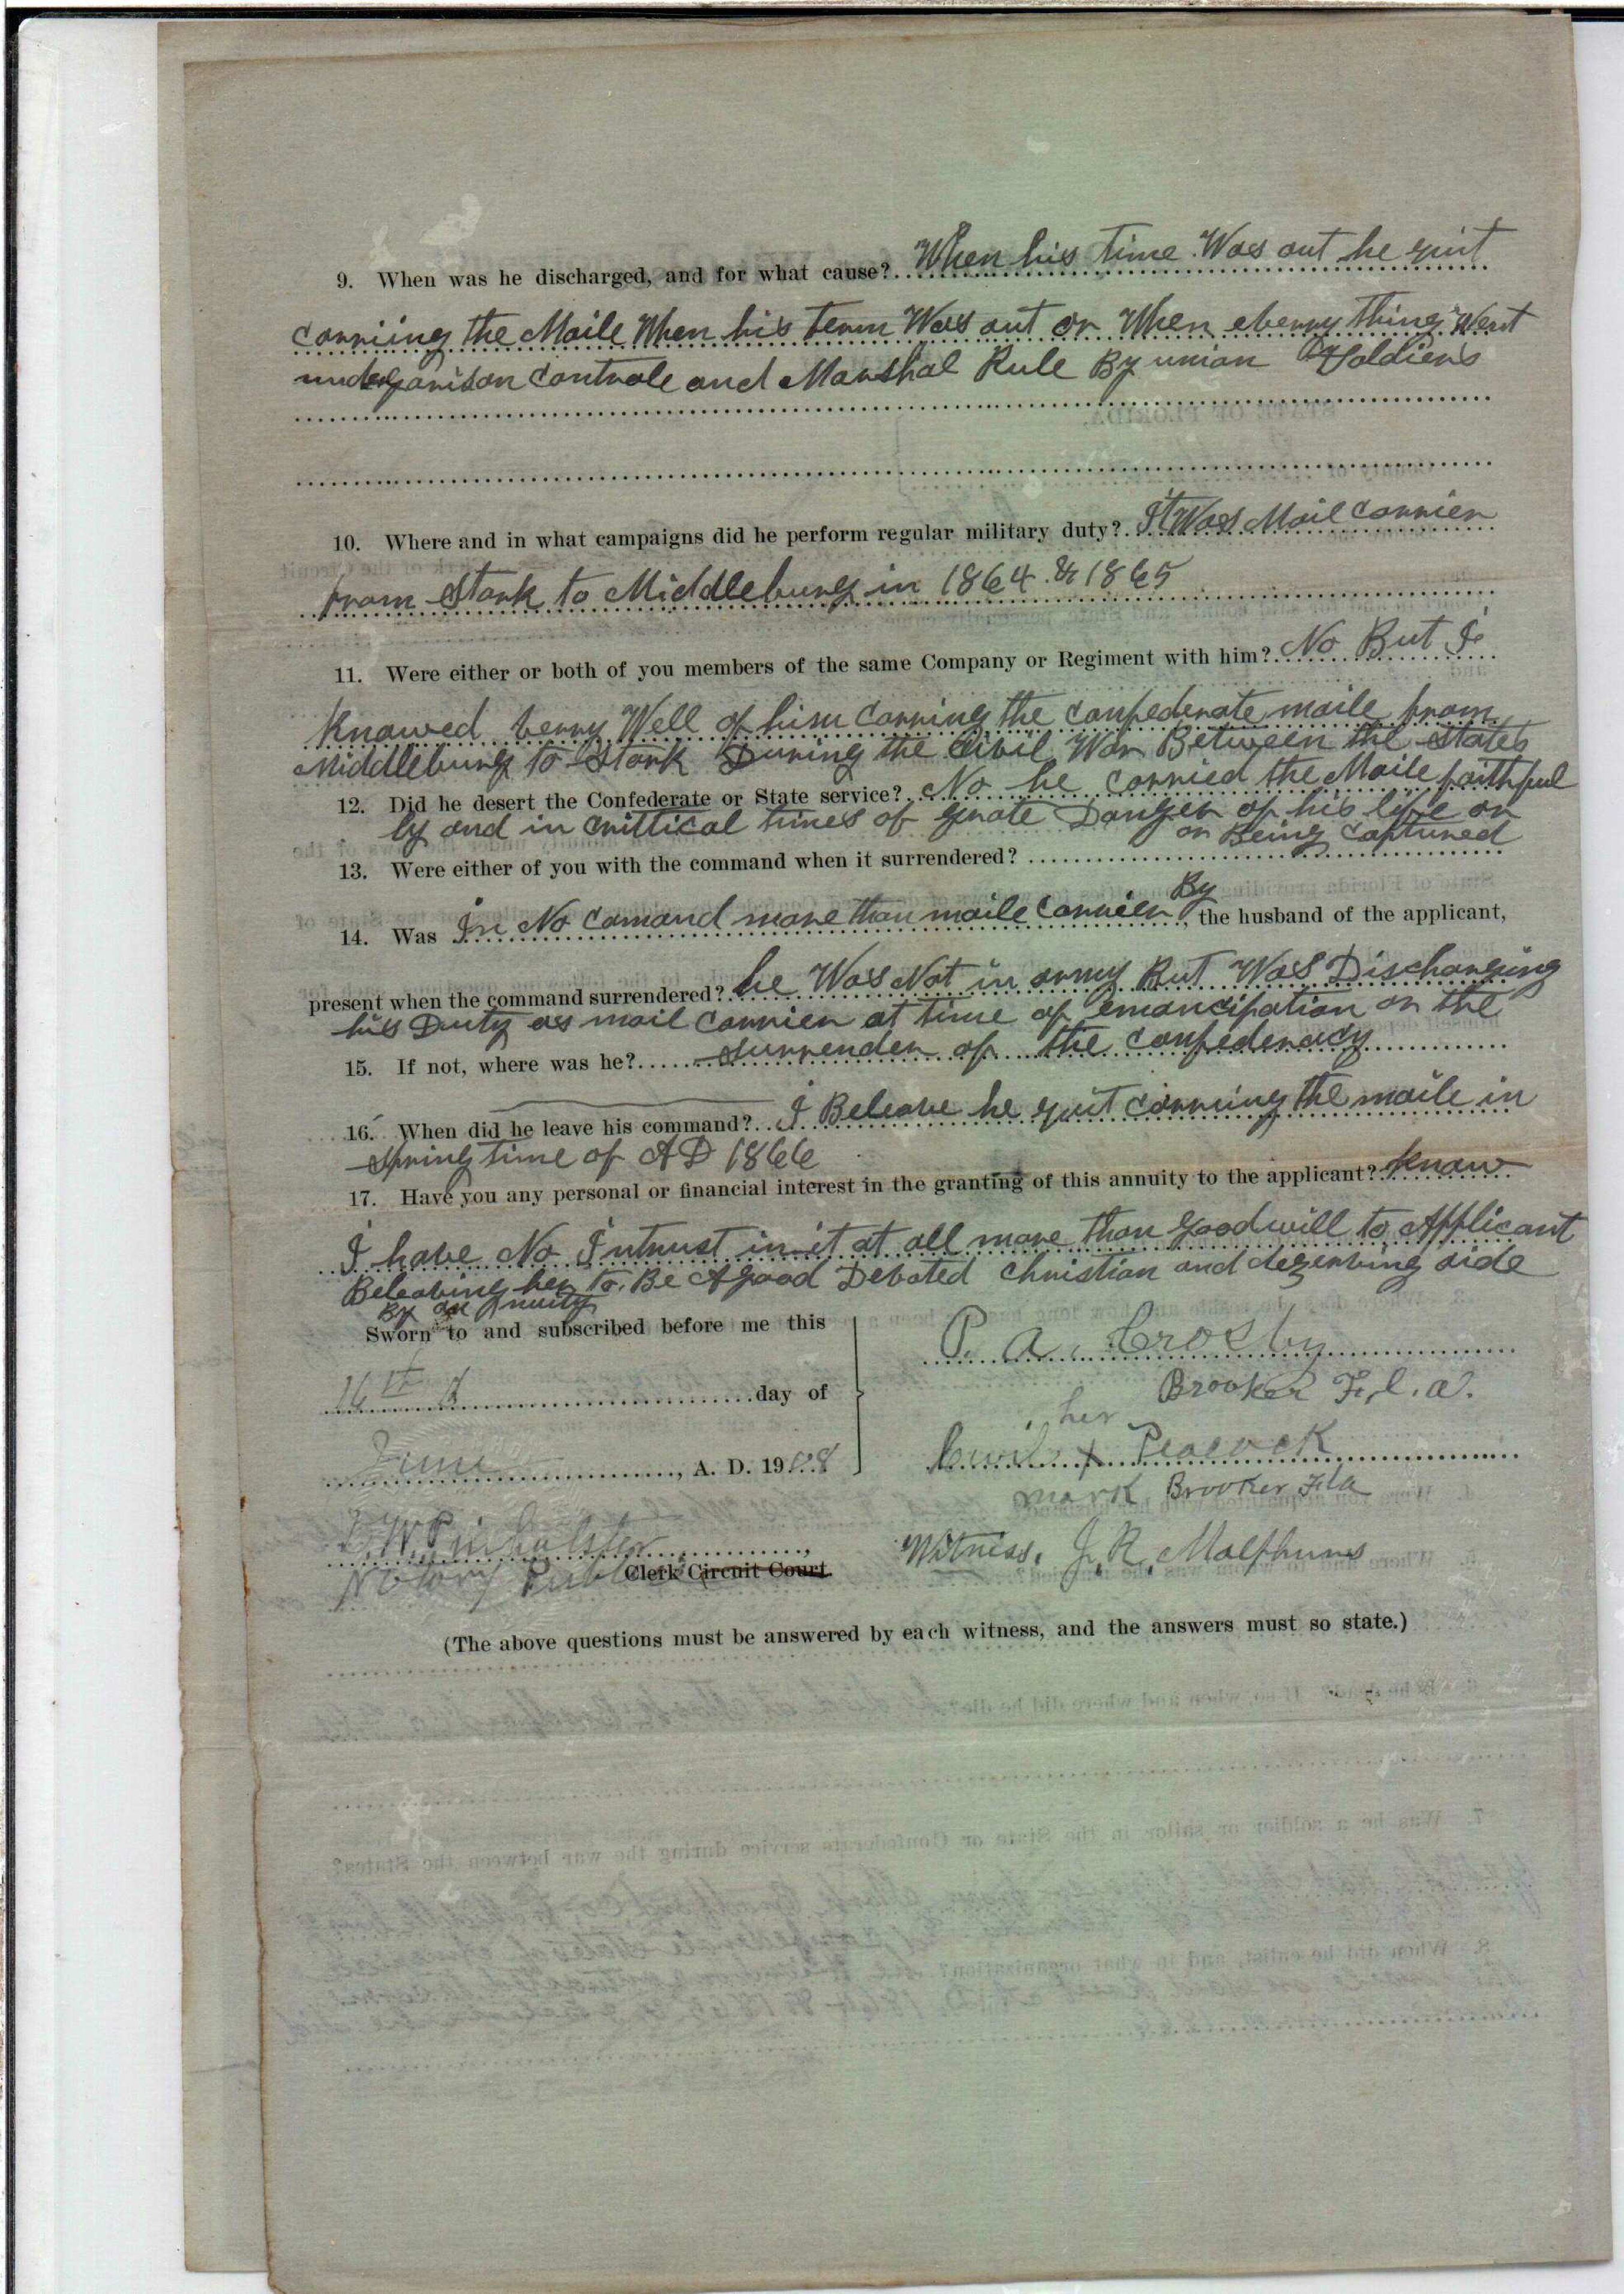 9. When was he discharged, and for what cause? When his time Was out he quit
carriing the Maile When his term Was out or When everry thing Went
under garison controle and Marshal Rule By union Soldiers
10. Where and in what campaigns did he perform regular military duty? It Was Mail carrier
from Stark to Middleburg in 1864 & 1865
11. Were either or both of you members of the same Company or Regiment with him? No But I
Knowed verry Well of him carring the confederate maile from
Middleburg to Stark During the Civil War Between the States
12. Did he desert the Confederate or State service? No he carried the Maile faithful
ly and in crittical times of grate Danger of his life or
or Being captured
13. Were either of you with the command when it surrendered?
14. Was In No comand more than maile carrier By, the husband of the applicant,
present when the command surrendered? he Was Not in army But Was Discharging
his Duty as mail carrier at time of emancipation or the
15. If not, where was he? surrender of the confederacy
16. When did he leave his command? I Beleave he quit carrying the maile in
spring time of AD 1866
17. Have you any personal or financial interest in the granting of this annuity to the applicant? know
I have No Intrust in it at all more than good will to Applicant
Beleaving her to Be A good Devoted christian and deserving aide
By
Sworn to and subscribed before me this
P. A. Crosby
16th day of
Brooker Fla.
her
June, A. D. 1908
x Peacock
mark Brooker Fla
Witness. J. R. Malphurs
Notary Public Clerk Circuit Court
(The above questions must be answered by each witness, and the answers must so state.)